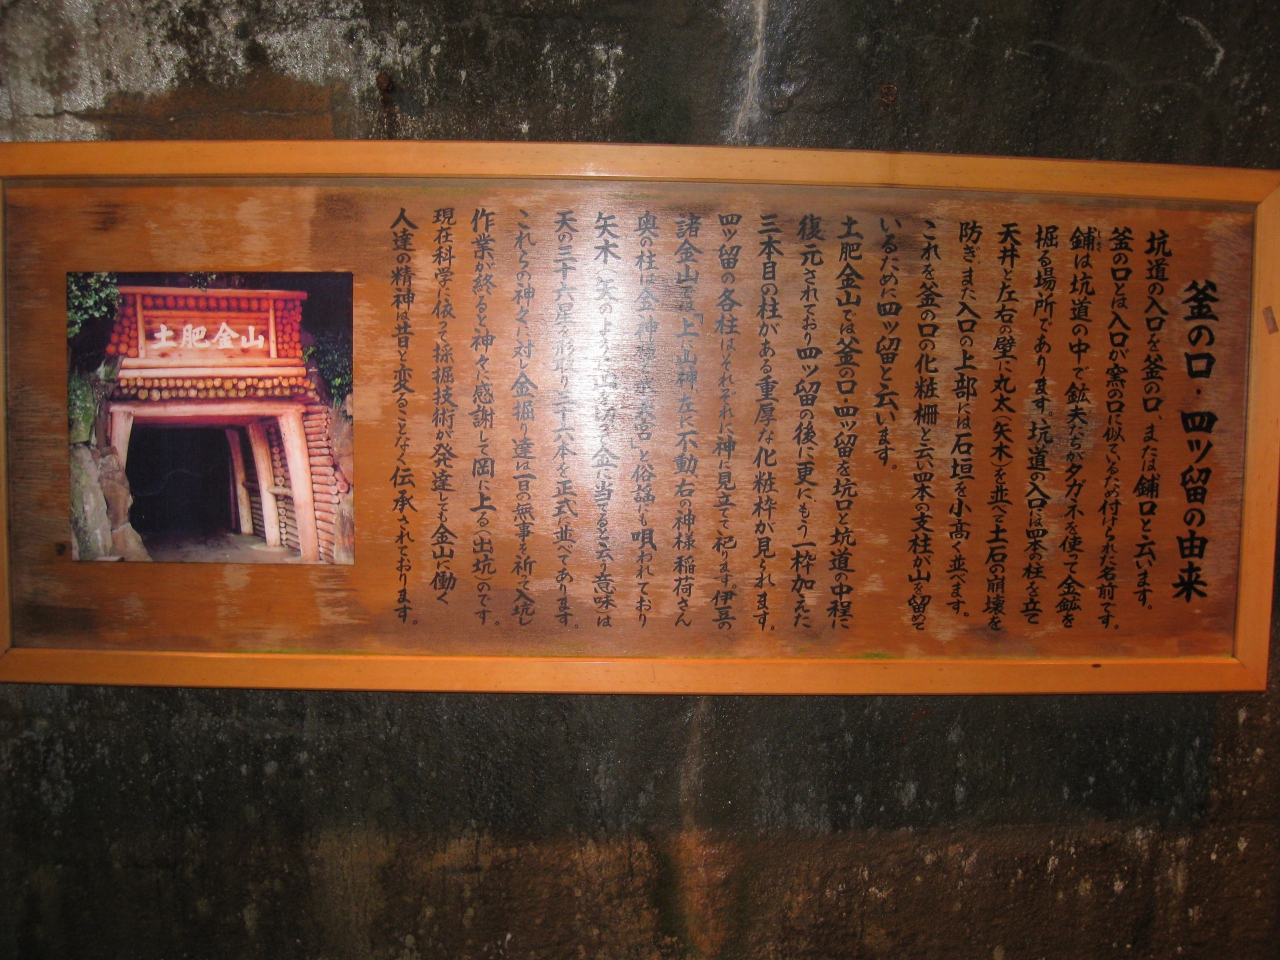 釜の口・四ツ留の由来
坑道の入口を釜の口、または鋪口と云います。
釜の口とは入口が窯の口に似ているため付けられた名前です。
鋪は坑道の中で鉱夫たちがタガネを使って金鉱を
掘る場所であります。坑道の入口は四本の柱を立て
天井と左右の壁に丸太(矢木)を並べ土石の崩壊を
防ぎまた入口の上部には石垣を小高く並べます。
これを釜の口の化粧柵と云い四本の支柱が山を留めて
いるために四ツ留と云います。
土肥金山では釜の口・四ツ留を坑口と坑道の中程に
復元されており四ツ留の後に更にもう一枠加えた
三本目の柱がある重厚な化粧枠が見られます。
四ツ留の各柱はそれぞれに神に見立てて祀ります。伊豆の
諸金山では「上い山神左に不動右の神様稲荷さん
奥の柱は金神様
宮」と俗謡にも唄われており
矢木(矢のように
金に当てると云う意味)は
天の三十六星を形取り三十六本を正式に並べてあります。
これらの神々に対し金掘り達は一日の無事を祈って入坑し
作業が終ると神々に感謝して岡に上る(出坑)のです。
現在科学に依って採掘技術が発達しても金山に働く
人達の精神は昔と変ることなく伝承されております。
土肥金山